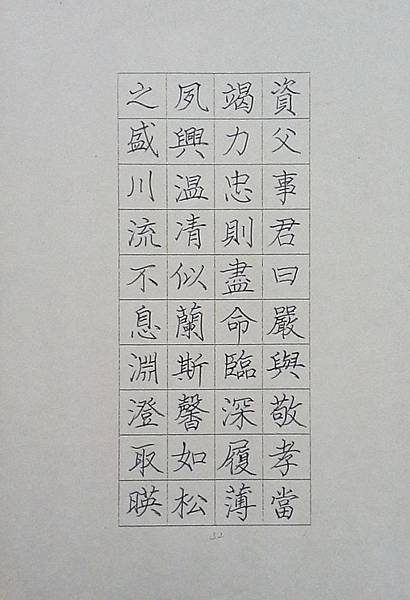 資父事君曰嚴與敬孝當
竭力忠則盡命臨深履薄
夙興温凊似蘭斯馨如松
之盛川流不息淵澄取暎
32